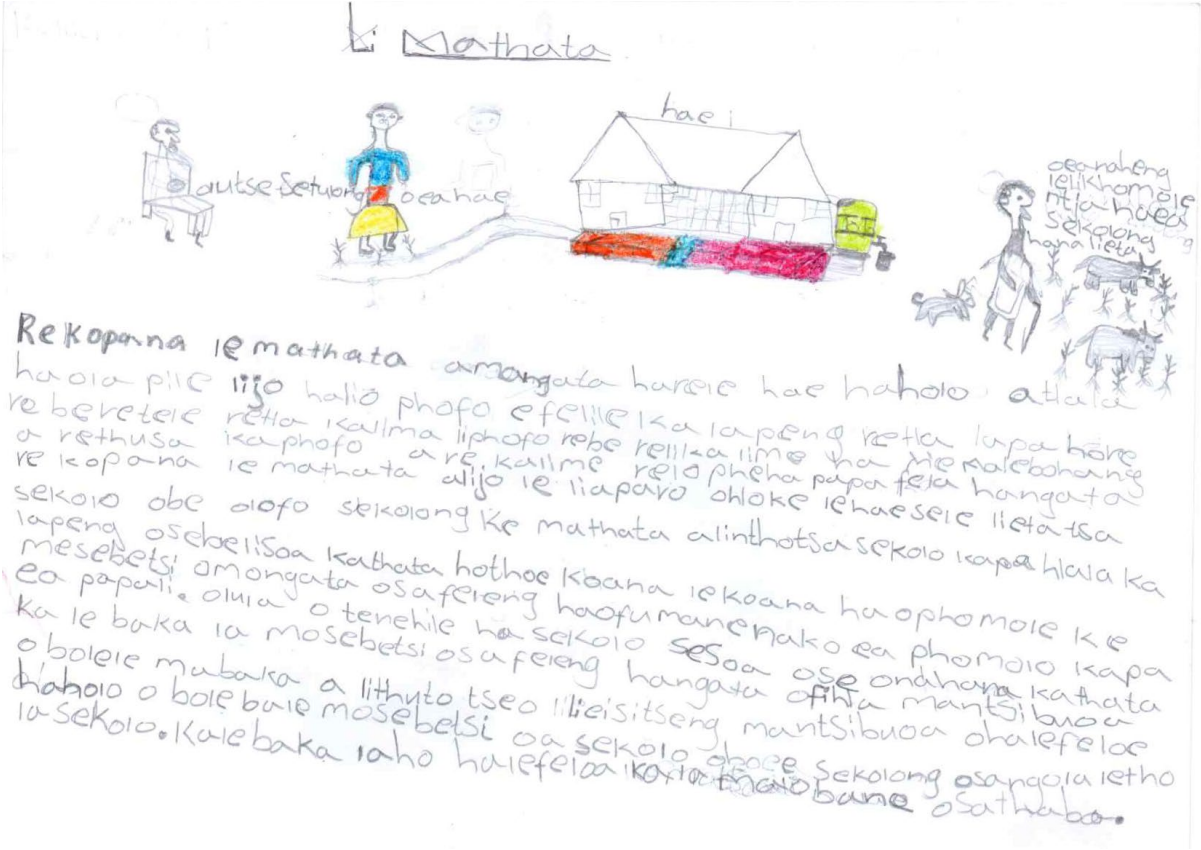 Li Mathata
hae
outse Setulong oea hae
oeanaheng
lelikhomole
ntja haea
sekolong
hana lieta
Re kopana le mathata amangata hareie hae haholo. atlala
ha ola pile lijo halio phofo e felile ka lapeng retla lapa hore
re beretele retla kalima liphofo rebe relika lime ha 'me Malebohang
a rethusa ikaphofo are.kalime relo pheha papa fela hangata
re kopana le mathata alijo le liaparo ohloke lehaesele lieta tsa
sekolo obe olofo sekolong ke mathata alinthotsa sekolo kapa hlala ka
lapeng osebelisoa kathata hothoe koana le koana ha ophomole ke
mesebetsi omongata osafeleng haofumane nako ea phomolo kapa
ea papali. olula o tenehile ha sekolo sesoa ose onahana kathata
ka le baka la mosebetsi osafeleng hangata ofihla mantsibuoa
o bolele mabaka a lithuto tseo lilieisitseng mantsibuoa ohalefeloe
haholo o bole bale mosebetsi oa sekolo oboee sekolong osangola letho
la sekolo. Kalebaka laho halefeloa bane osathaba.